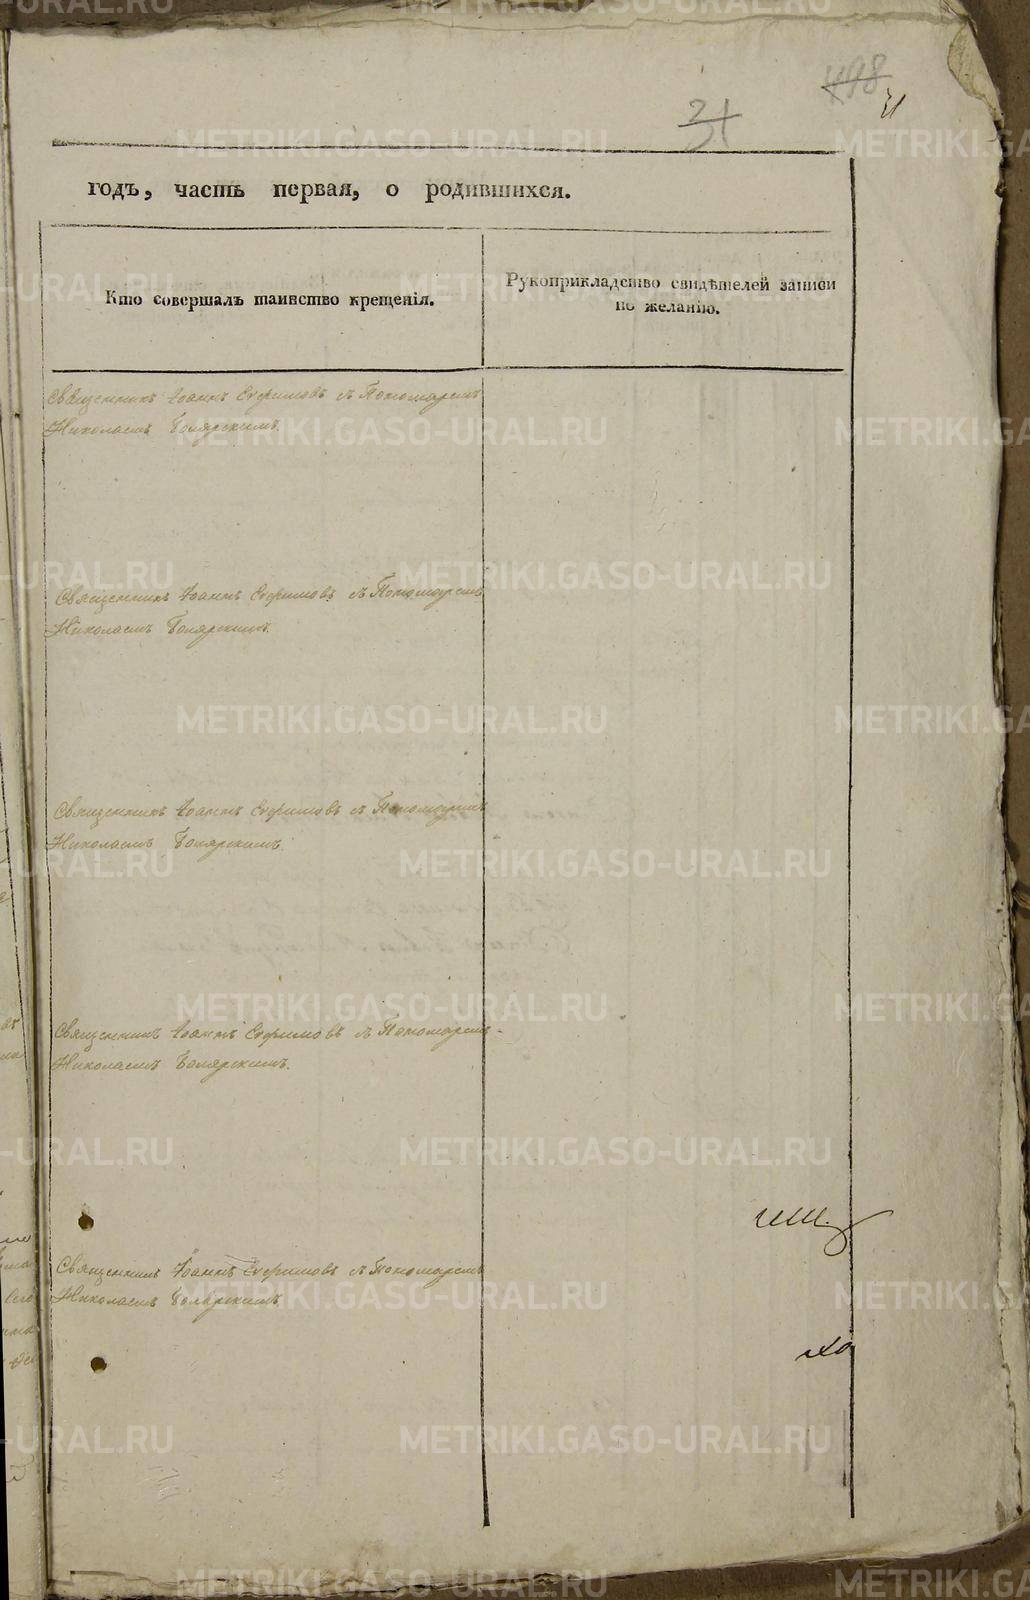 498
31
31
годъ, часть первая, о родившихся.
Кто совершалъ таинство крещенія.
Рукоприкладство свидѣтелей записи
по желанію.
Священникъ Іоаннъ Ефимовъ съ Пономаремъ
Николаемъ Боярскимъ.
Священникъ Іоаннъ Ефимовъ съ Пономаремъ
Николаемъ Боярскимъ.
Священникъ Іоаннъ Ефимовъ съ Пономаремъ
Николаемъ Боярскимъ.
Священникъ Іоаннъ Ефимовъ съ Пономаремъ
Николаемъ Боярскимъ.
Священникъ Іоаннъ Ефимовъ съ Пономаремъ
Николаемъ Боярскимъ.
METRIKI.GASO-URAL.RU